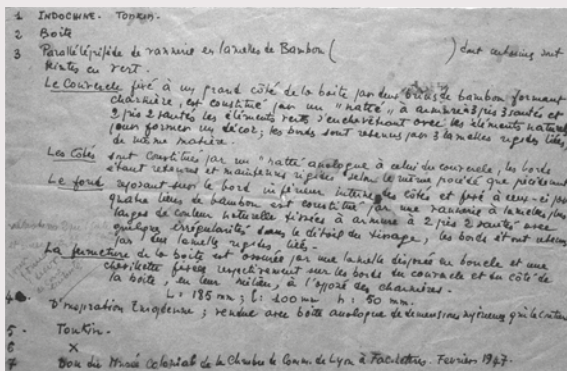 1 INDOCHINE. TONKIN.
2 Boîte
3 Parallélépipède de vannerie en lamelles de Bambou ( ) dont certaines sont
teintes en vert.
Le Couvercle fixé à un grand côté de la boîte par deux de bambou formant
charnière, est constitué par un "natté", à armure 3 pris 3 sautés et
2 pris 2 sautés les éléments verts s'enchevêtrant avec les éléments naturels
pour former un décor; les bords sont retenus par 3 lamelles rigides liées,
de même matière.
Les Côtés sont constitués par un "natté analogue à celui du couvercle, les bords
étant retenus et maintenus rigides selon le même procédé que précédemment
Le fond reposant sur le bord inférieur interne des côtés et fixé à ceux-ci par
quatre liens de bambou est constitué par une vannerie à lamelles plus
larges de couleur naturelle tissées à armure à 2 pris 2 sautés avec
quelques irrégularités dans le détail du tissage, les bords étant retenus
par des lamelles rigides, liées.
La fermeture de la boîte est assurée par une lamelle disposée en boucle et une
chevillette fixées respectivement sur les bords du couvercle et du côté de
la boîte, en leur milieu, à l'opposé des charnières.
L: 185 mm; l: 100 mm h: 50 mm.
4 D'inspiration ; vendue avec boîte analogue de dimensions
5. Tonkin.
6 X
7 Don du Musée Colonial de la Chambre de Comm. de Lyon à Fac. Lettres. Fevrier 1947.